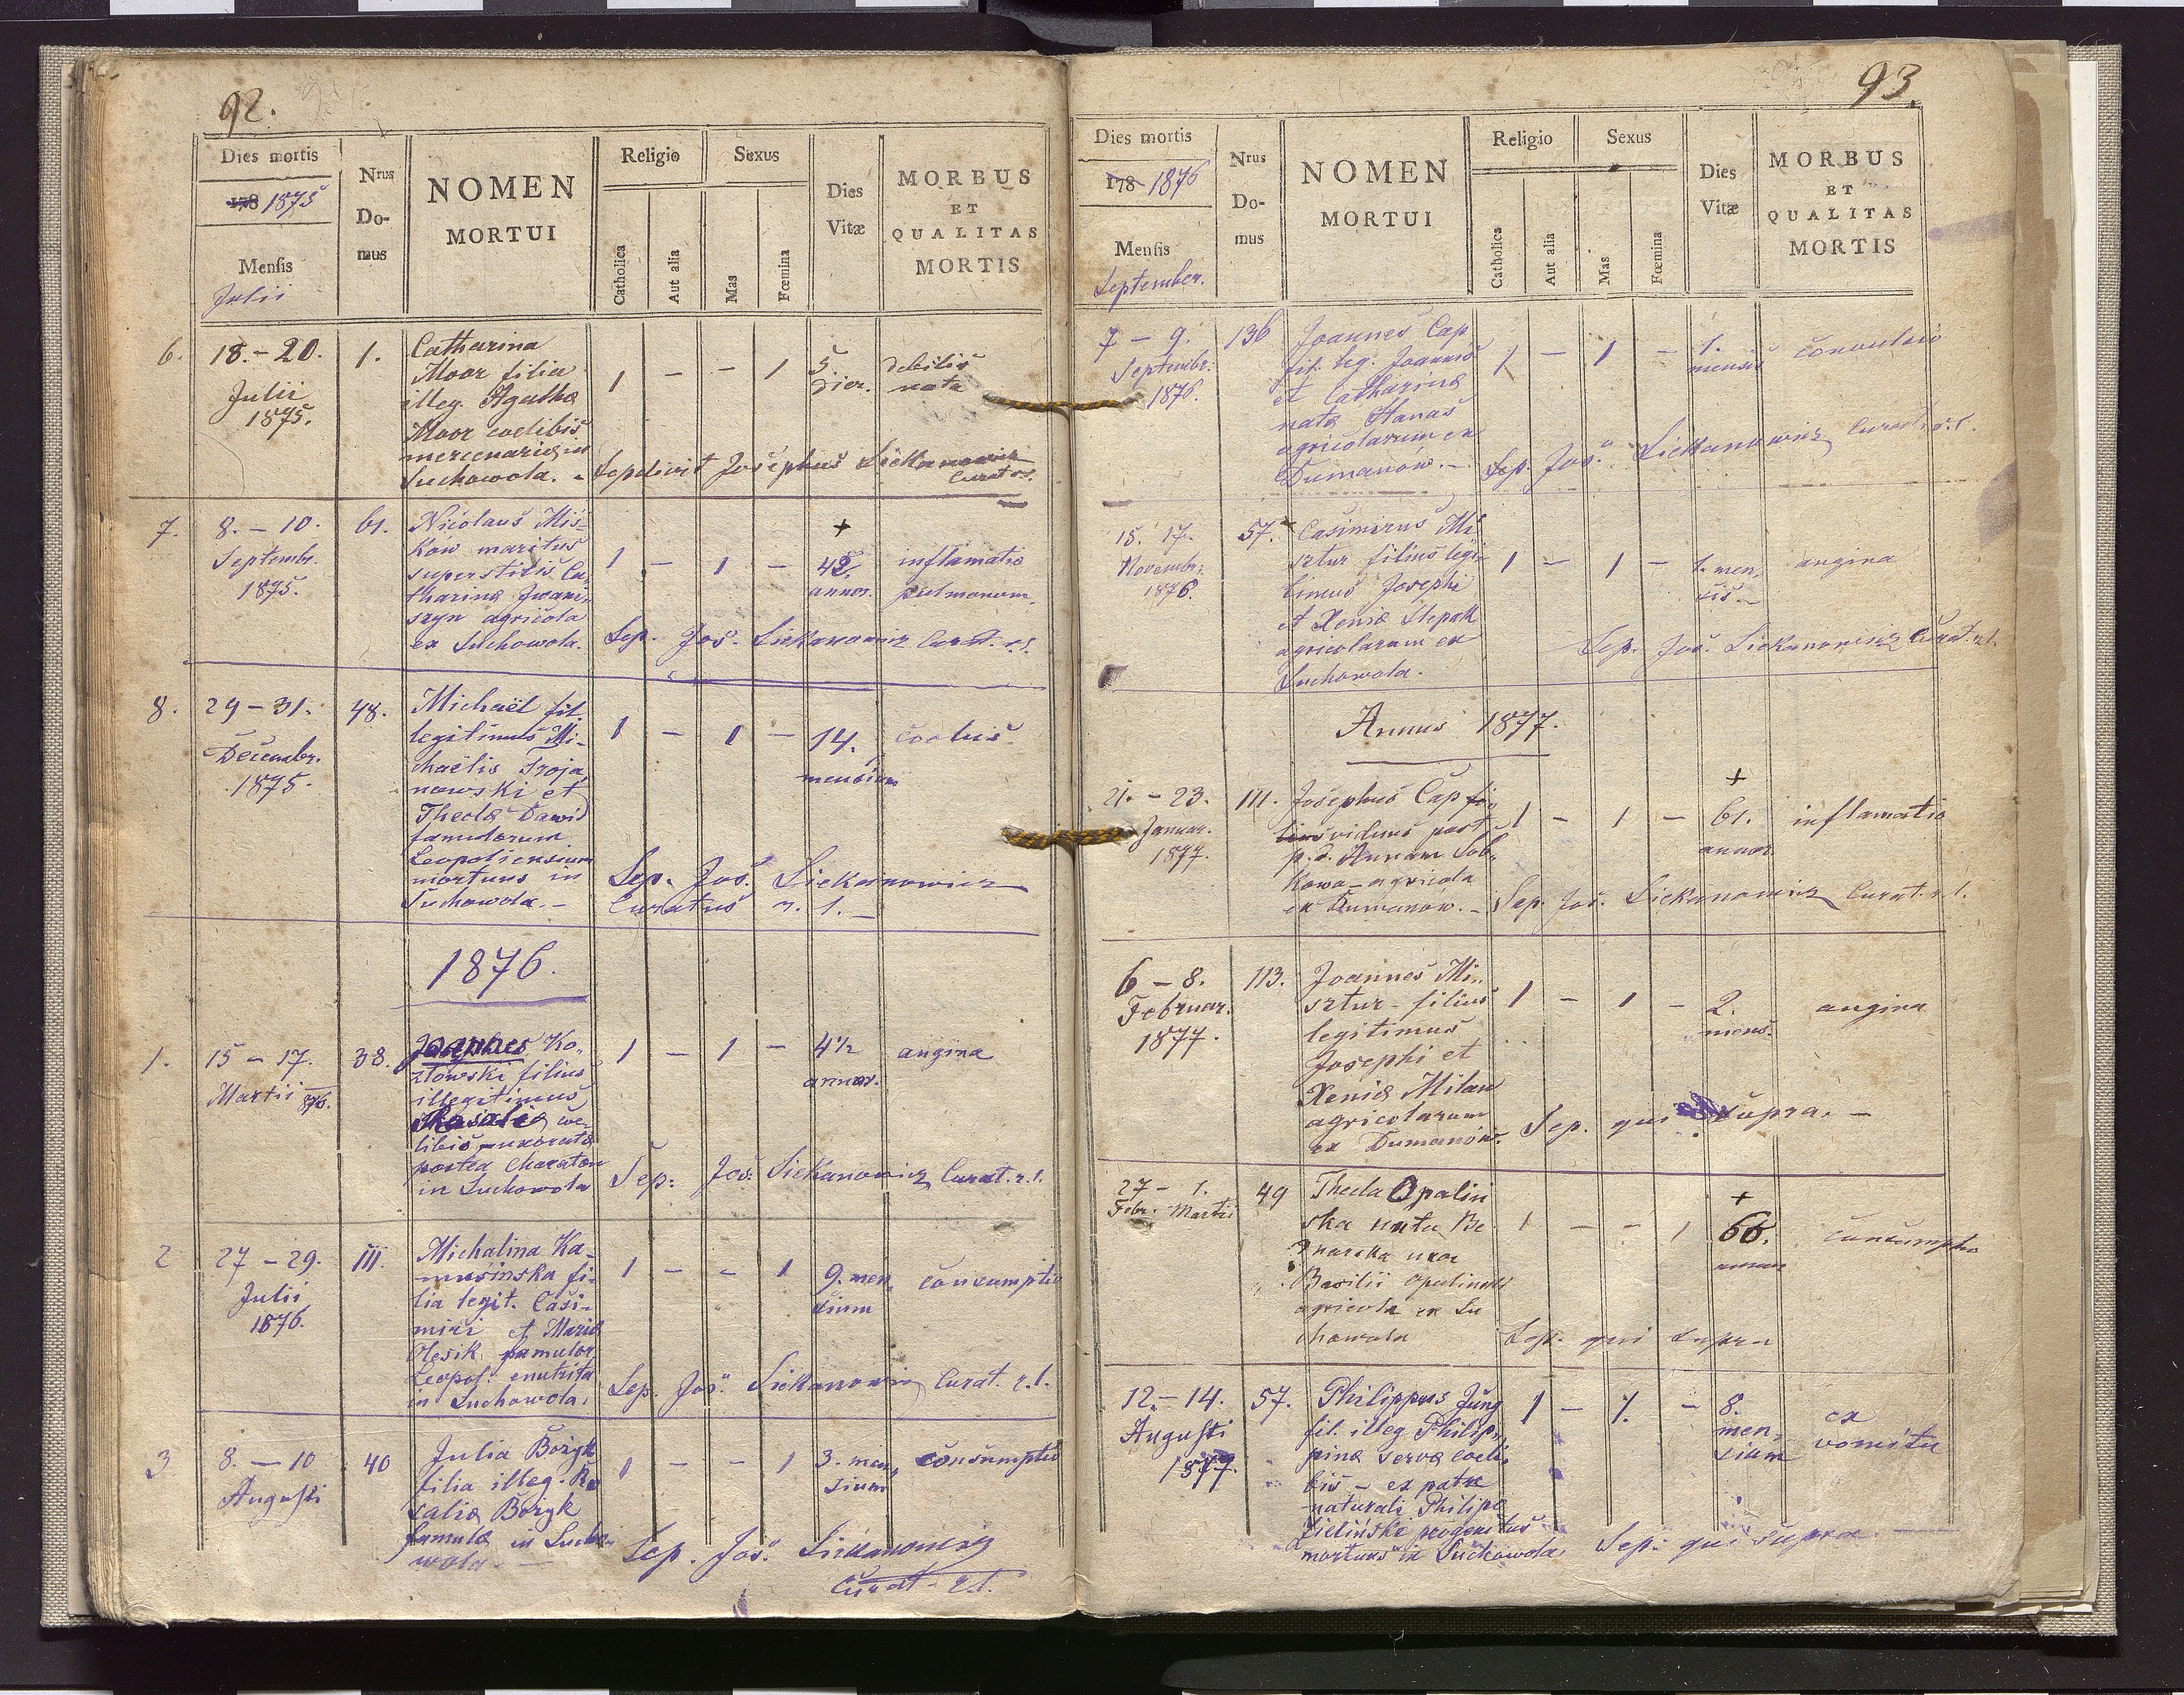 92.
Dies mortis
178 1875
Mensis
Julii
Nrus
Do-
mus
NOMEN
MORTUI
Religio
Catholica
Aut alia
Sexus
Mas
Fœmina
Dies
Vitæ
MORBUS
ET
QUALITAS
MORTIS
6.
18. - 20.
Julii
1875.
1.
Catharina
Moor filia
illeg. Agatha
Moor coelibis
mercenaria in
Suchowola. -
1 - - 1
5.
dier.
debilis
nata
Sepelivit Josephus Siekanowicz
Curat.
7.
8. - 10.
Septembr.
1875.
61.
Nicolaus Mis-
ków maritus
superstitis Ca-
tharina
szyn agricola
ex Suchowola.
1 - 1 -
+
42.
annor.
inflamatio
pulmonum.
Sep. Jos. Siekanowicz Curat. r.l.
8.
29 - 31.
Decembr.
1875.
48.
Michaël fil.
legitimus Mi-
chaëlis Troja
nowski et
Thecla Dawid
famulorum
Leopoliensium
mortuus in
Suchowola. -
1 - 1 -
14.
mensium
Sep. Jos. Siekanowicz
Curatus r. l. -
1876.
1.
15 - 17.
Martii 876.
38.
Ko-
złowski filius
illegitimus
Rosalia coe-
libis - uxorata
postea Charaton
in Suchowola
1 - 1 -
4 1/2
annor.
angina
Sep: Jos: Siekanowicz Curat. r.l.
2
27 - 29.
Julii
1876.
111.
Michalina Ka-
musinska fi-
lia legit. Casi-
miri et Maria
Olesik famulor
Leopol. enutrita
in Suchowola.
1 - - 1
9. men-
sium
consumptio
Sep. Jos. Siekanowicz Curat. r.l.
3
8. - 10
Augusti
40
Julia Bożyk
filia illeg. Ro
salia Bożyk
famula in Sucho
wola. -
1 - - 1
3. men-
sium
consumptio
Sep. Jos. Siekanowicz
Curat - r.l.
93.
Dies mortis
178 1876
Mensis
September.
Nrus
Do-
mus
NOMEN
MORTUI
Religio
Catholica
Aut alia
Sexus
Mas
Fœmina
Dies
Vitæ
MORBUS
ET
QUALITAS
MORTIS
7 - 9.
Septembr.
1876.
136
Joannes Cap
fil. leg. Joannis
et Catharina
nata Hanas
agricolarum ex
Dumanów. -
1 - 1 -
1.
mensis
convulsio
Sep. Jos. Siekanowicz Curat. r.l.
15. 17.
Novembr.
1876.
57.
Casimirus Mi-
sztur filius legi-
timus Josephi
et Xenia Stepak
agricolarum ex
Suchowola.
1 - 1 -
1. men-
sis -
angina
Sep. Jos. Siekanowicz Curat. r.l.
Annus 1877.
21. - 23.
Januar.
1877.
111.
Josephus Cap fi-
lius viduus post
p. d. Annam Sob-
kowa - agricola
ex Dumanów. -
1 - 1 -
+
61.
annor.
inflamatio
Sep. Jos. Siekanowicz Curat. r.l.
6 - 8.
Februar.
1877.
113.
Joannes Mi-
sztur - filius
legitimus
Josephi et
Xenia Milan
agricolarum
ex Dumanów.
1 - 1 -
2.
mens.
angina
Sep. qui supra. -
27 - 1.
Febr. Martii
49
Thecla Opalin
ska nata Be
dnarska uxor
Basilii Opalinski
agricola ex Su
chowola
1 - - 1
+
66.
annor
consumptio
Sep. qui supra
12. - 14.
Augusti
1877.
57.
Philippus Jung
fil. illeg Philip-
pina serva coeli-
bis - ex patre
naturali Philipo
Zieliński progenitus
mortuus in Suchowola
1 - 1. -
8.
men-
sium
ex
vomitu
Sep. qui supra -